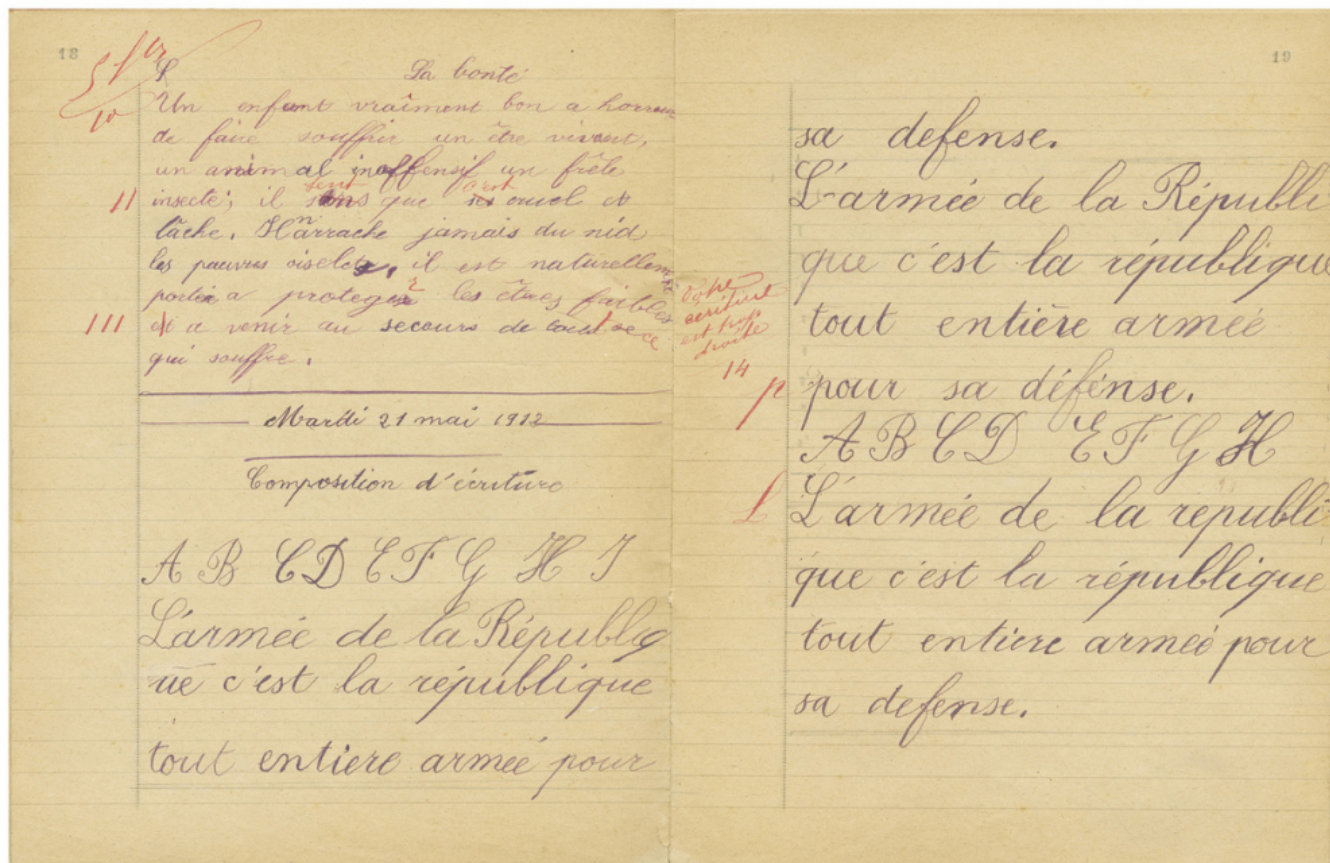 18
La bonté
10
Un enfant vraiment bon a horreur
de faire souffrir un être vivant,
un animal inoffensif un frêle
sent c'est
II insecte; il sens que ses cruel et
lâche. Il n'arrache jamais du nid
les pauvres oiselets, il est naturellement
portée a proteger les êtres faibles
III et a venir au secours de tout ce
qui souffre.
Mardi 21 mai 1912
Composition d'écriture
A B C D E F G H I
L'armée de la Républiq
ue c'est la république
tout entière armée pour
19
sa defense.
L'armée de la Républi
que c'est la république
tout entière armée
pour sa défense.
A B C D E F G H
L'armée de la republi
que c'est la république
tout entiere armée pour
sa defense.
Votre
écriture
est trop
droite
14
p
L